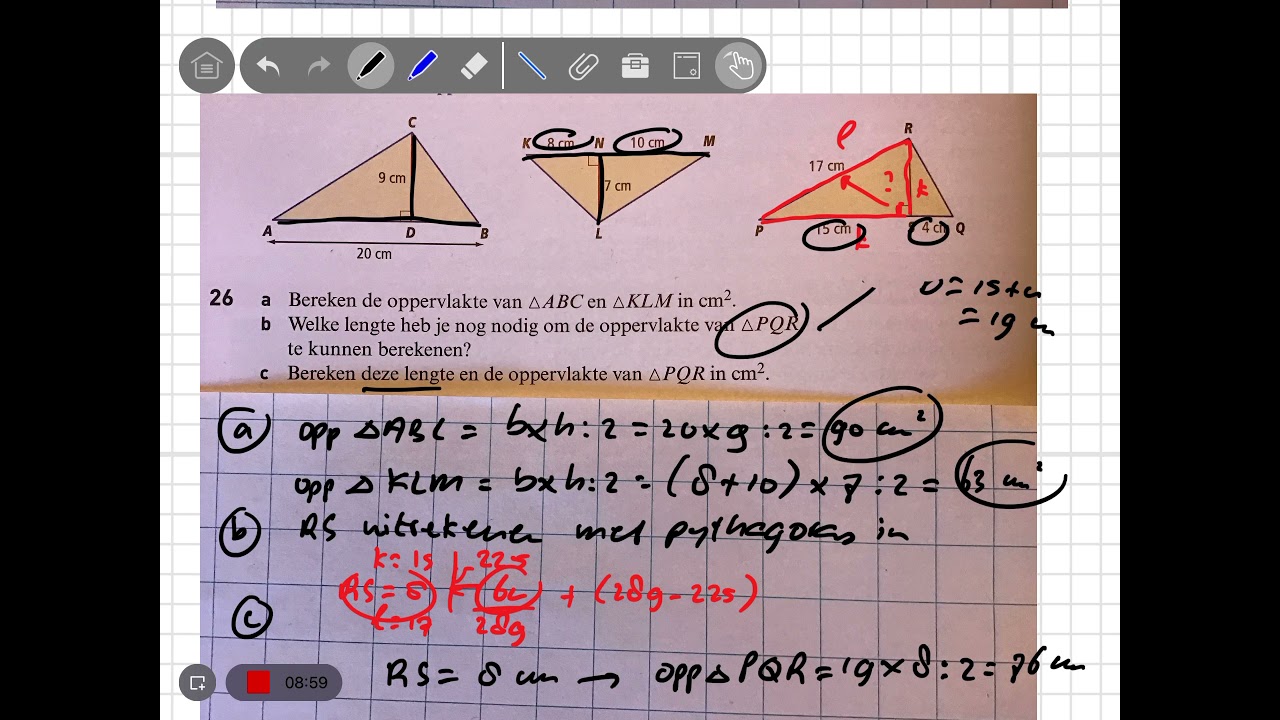 C
9 cm
A D B
20 cm
K 8 cm N 10 cm M
7 cm
L
R
l
17 cm
? k
P 15 cm k S 4 cm Q
26 a Bereken de oppervlakte van △ABC en △KLM in cm².
b Welke lengte heb je nog nodig om de oppervlakte van △PQR
te kunnen berekenen?
c Bereken deze lengte en de oppervlakte van △PQR in cm².
= 15+4
= 19 cm
a opp △ABC = bxh:2 = 20x9:2 = 90 cm²
opp △ KLM = bxh:2 = (8+10) x 7:2 = 63 cm²
b RS uitrekenen met pythagoras in
k=15 225
RS=8 64 + (289-225)
l=17 289
c
RS = 8 cm → opp △ PQR = 19 x 8:2 = 76 cm
08:59